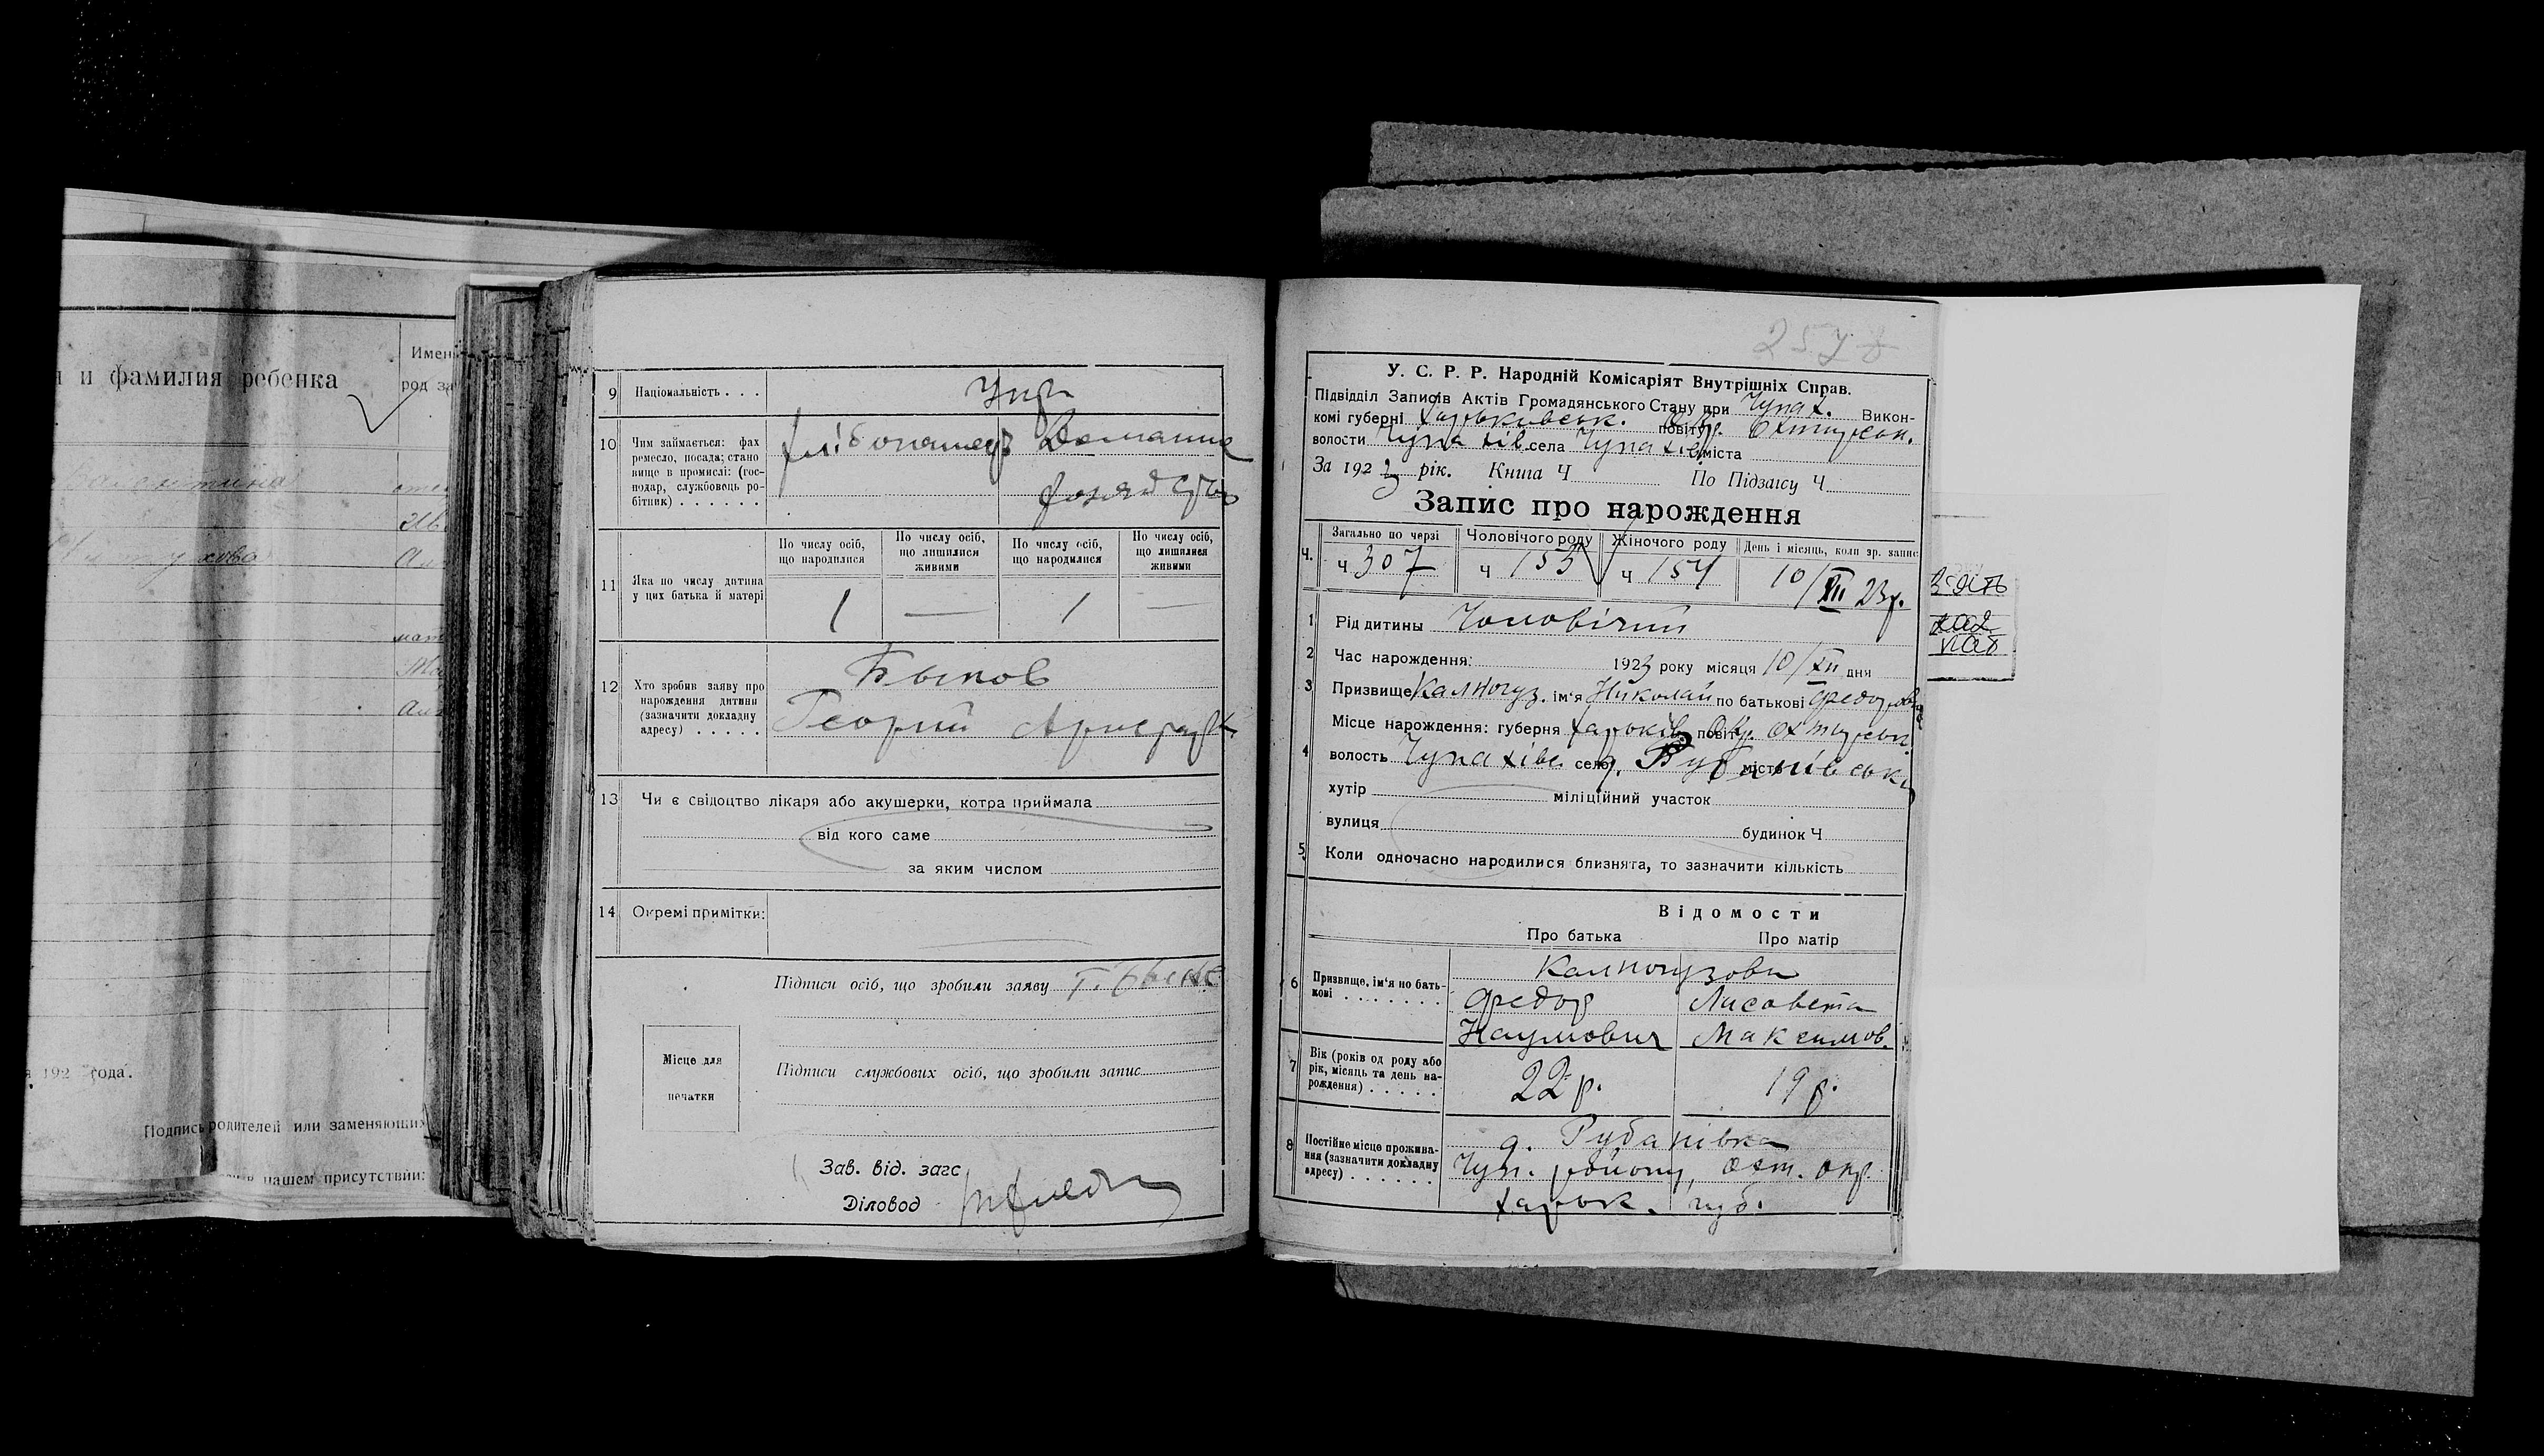 и фамилия ребенка
Имен
род за
192 года.
Подпись родителей или заменяющих
в нашем присутствии:
9 Національність . . . Укр
10 Чим займається: фах
ремесло, посада; стано
вище в промислі: (гос-
подар, службовець ро-
бітник) . . . . . .
Домашнє
11 Яка по числу дитина
у цих батька й матері
По числу осіб,
що народилися
По числу осіб,
що лишилися
живими
По числу осіб,
що народилися
По числу осіб,
що лишилися
живими
1 — 1 —
12 Хто зробив заяву про
нарождення дитини
(зазначити докладну
адресу) . . . . .
Быков
Георгий
13 Чи є свідоцтво лікаря або акушерки, котра приймала
від кого саме
за яким числом
14 Окремі примітки:
Підписи осіб, що зробили заяву Г. Быков
Місце для
печатки
Підписи службових осіб, що зробили запис
Зав. від. загс
Діловод
257
У. С. Р. Р. Народній Комісаріят Внутрішніх Справ.
Підвідділ Записів Актів Громадянського Стану при Чупах. Викон-
комі губерні Харьковськ. повіту Окр. Охтирськ.
волости Чупахів. села Чупахівці міста
За 1923 рік. Книга Ч По Підзагсу Ч
Запис про нарождення
Ч. Загально по черзі Чоловічого роду Жіночого роду День і місяць, коли зр. запис
Ч 307 Ч 153 Ч 154 10/XII 23р.
1 Рід дитини Чоловічий
2 Час нарождення: 1923 року місяця 10/XII дня
3 Призвище Калногуз. ім'я Николай по батькові Федорович
4 Місце нарождення: губерня Харьків. повіт Окр. Охтирськ.
волость Чупахівс. село місто
хутір міліційний участок
вулиця будинок Ч
5 Коли одночасно народилися близнята, то зазначити кількість
Відомости
Про батька Про матір
6 Призвище, ім'я по бать-
кові . . . . . . . .
Калногузови
Федор Лисовета
Наумович Максимов.
7 Вік (років од роду або
рік, місяць та день на-
рождення) . . . . .
22 р. 19 р.
8 Постійне місце прожива-
ння (зазначити докладну
адресу) . . . . . .
д. Рубанівка
Чуп. району, Охт. окр.
Харьк. губ.